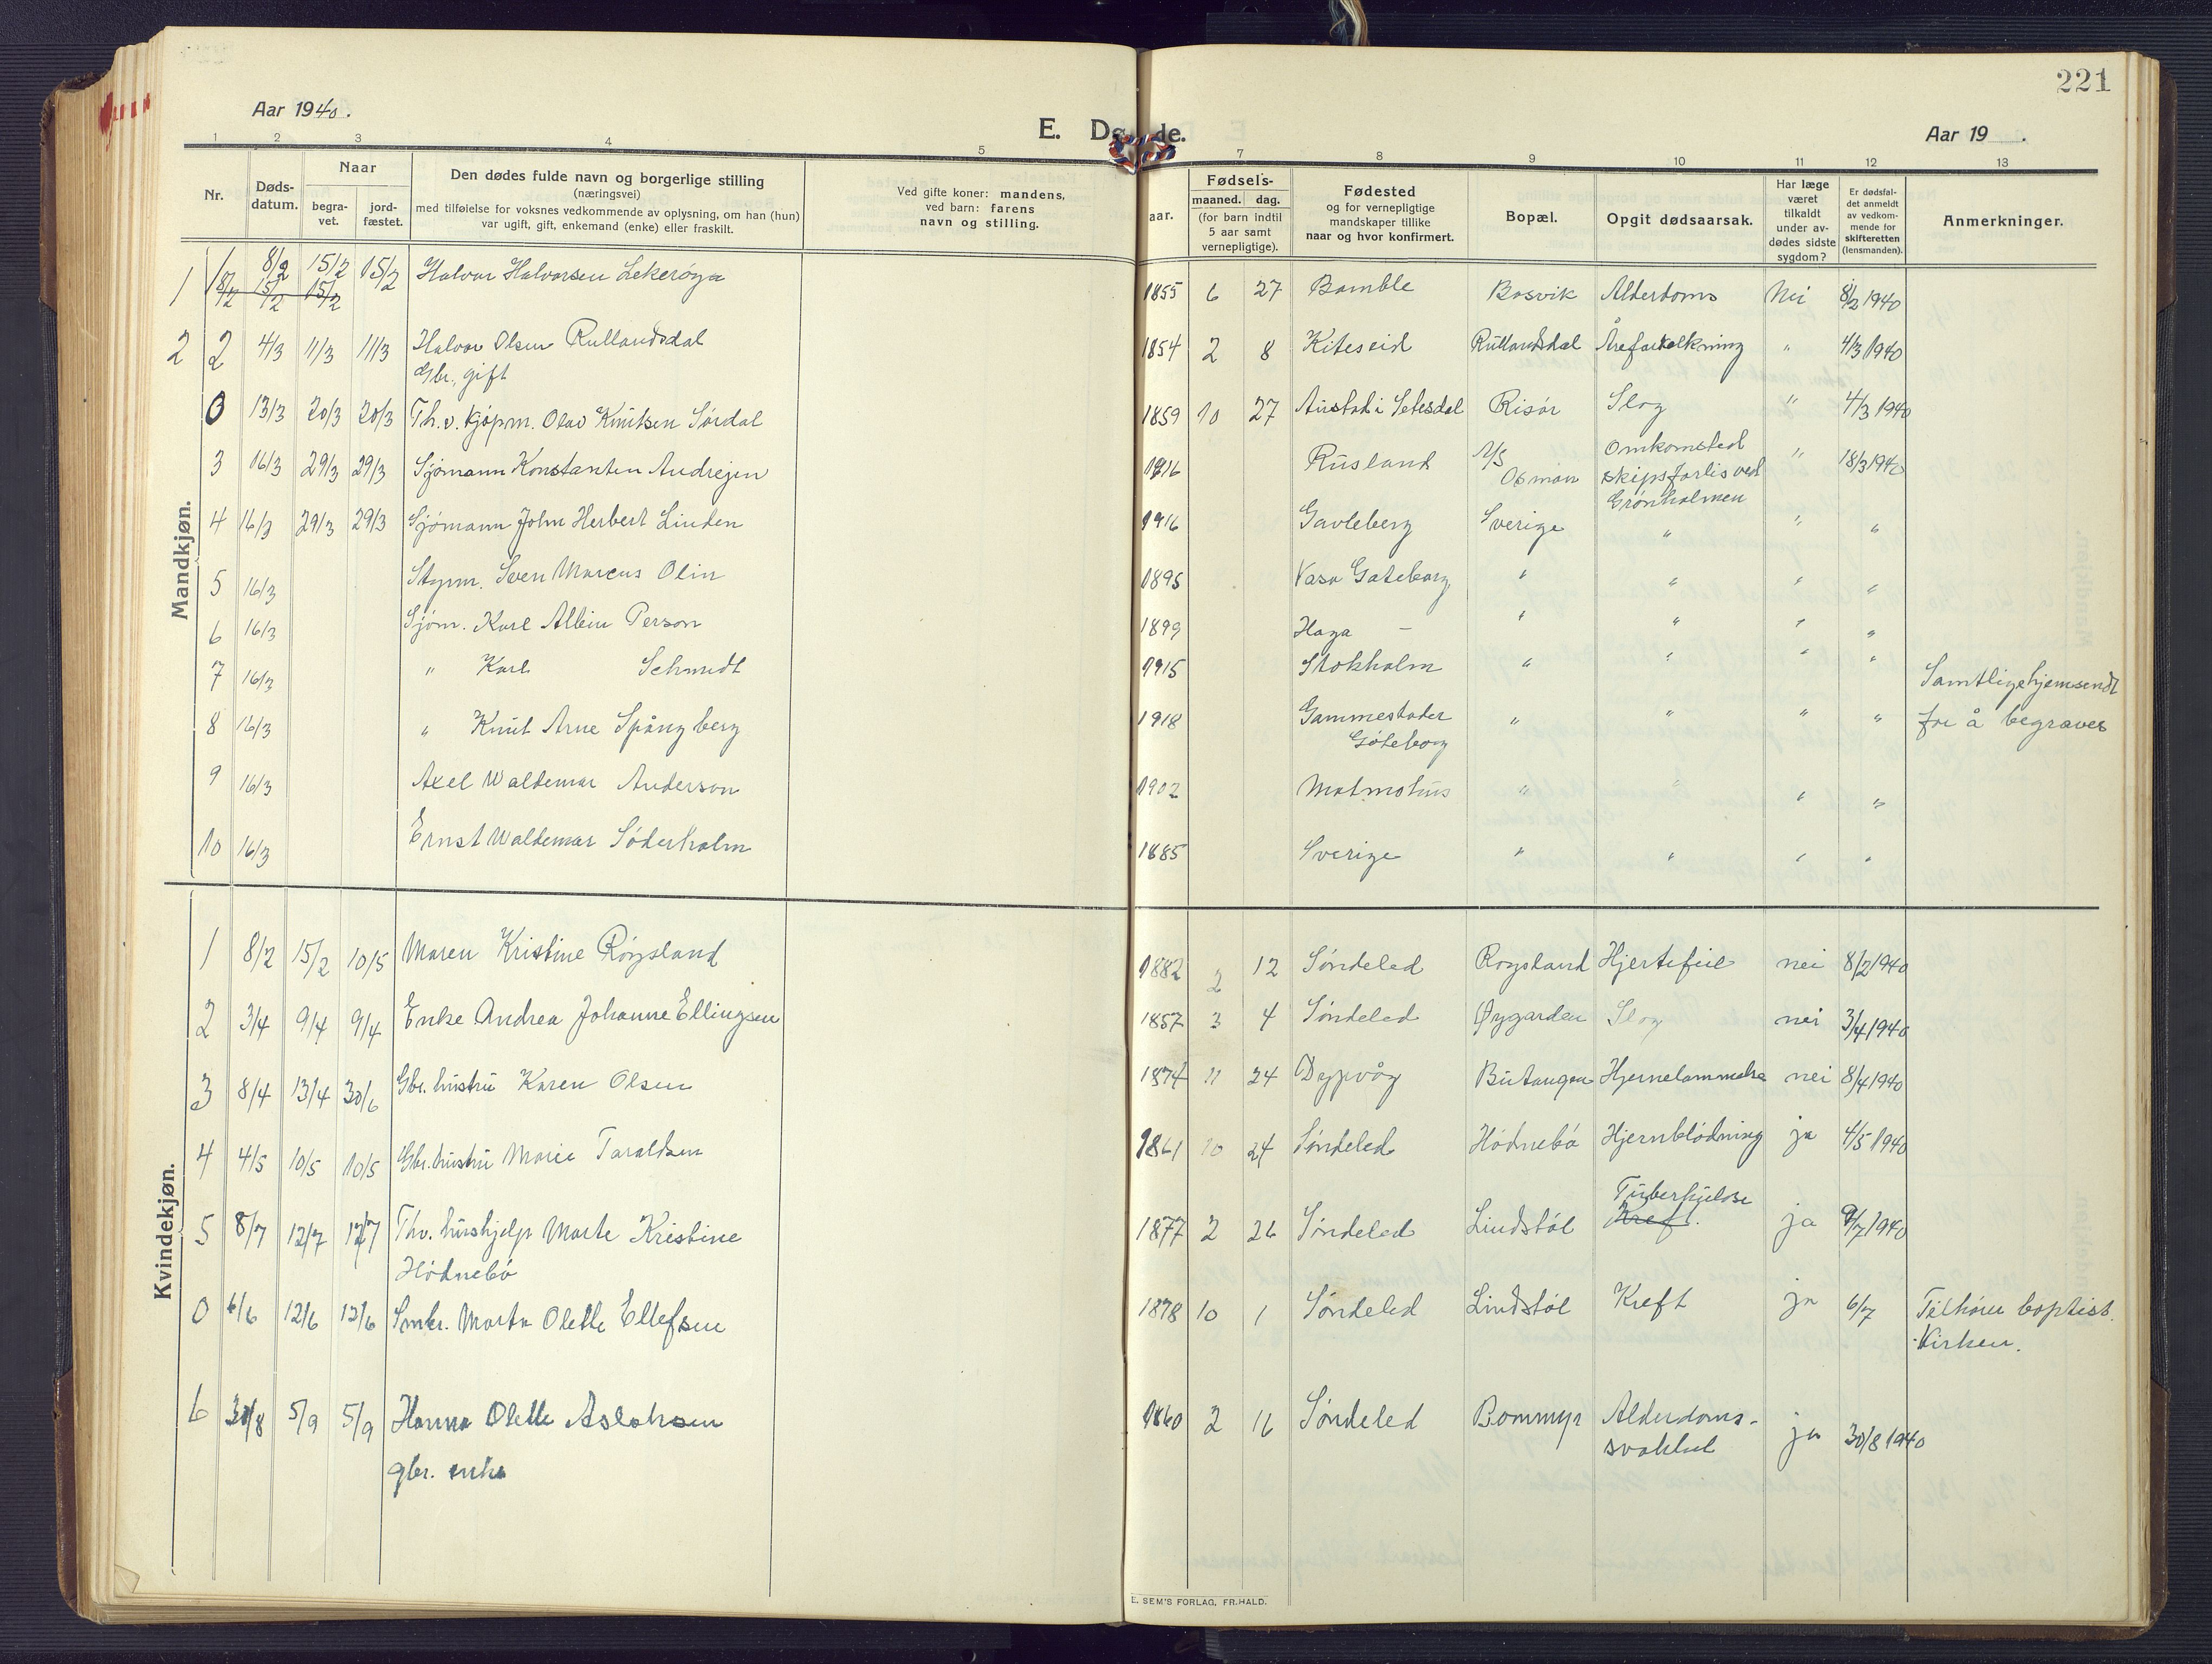 221
Aar 1940.
E. Dø de.
Aar 19 .
1 2 3 4 5 7 8 9 10 11 12 13
Nr.
Døds-
datum.
Naar
begra-
vet.
jord-
fæstet.
Den dødes fulde navn og borgerlige stilling
(næringsvei)
med tilføielse for voksnes vedkommende av oplysning, om han (hun)
var ugift, gift, enkemand (enke) eller fraskilt.
Ved gifte koner: mandens,
ved barn: farens
navn og stilling.
Fødsels-
aar. maaned. dag.
(for barn indtil
5 aar samt
vernepligtige).
Fødested
og for vernepligtige
mandskaper tillike
naar og hvor konfirmert.
Bopæl.
Opgit dødsaarsak.
Har læge
været
tilkaldt
under av-
dødes sidste
sygdom?
Er dødsfal-
det anmeldt
av vedkom-
mende for
skifteretten
(lensmanden).
Anmerkninger.
Mandkjøn.
1 1 8/2 15/2 15/2 Halvor Halvorsen Lekerøya 1855 6 27 Bamble Bosvik Alderdoms Nei 8/2 1940
8/2 15/2 15/2
2 2 4/3 11/3 11/3 Halvor Olsen Rullandsdal 1854 2 8 Kiteseid Rullandsdal Åreforkalkning " 4/3 1940
Gbr., gift
0 13/3 20/3 20/3 Th. v. Kjøpm. Olav Knutsen Sørdal 1859 10 27 Austad i Setesdal Risør Slag " 4/3 1940
3 16/3 29/3 29/3 Sjømann Konstantin Andrejen 1916 Rusland M/S Osman Omkomsted " 18/3 1940
skipsforlis ved
Grønholmen
4 16/3 29/3 29/3 Sjømann John Herbert Linden 1916 Gavleberg Sverige " " "
5 16/3 Styrm. Sven Marcus Olin 1895 Vasa Gøteborg " " " "
6 16/3 Sjøm. Karl Albin Person 1899 Haga — " " " "
7 16/3 " Karl Schmidt 1915 Stokholm " " " " Samtlige hjemsendt
8 16/3 " Knut Arne Spångberg 1918 Gammestader " " " " for å begraves
Gøteborg
9 16/3 Axel Waldemar Anderson 1902 Malmøhus " " " "
10 16/3 Ernst Waldemar Søderholm 1885 Sverige " " " "
Kvindekjøn.
1 8/2 15/2 10/5 Maren Kristine Røysland 1882 2 12 Søndeled Roysland Hjertefeil nei 8/2 1940
2 3/4 9/4 9/4 Enke Andrea Johanne Ellingsen 1857 3 4 Søndeled Øygarden Slag nei 3/4 1940
3 8/4 13/4 30/6 Gbr. hustru Karen Olsen 1874 11 24 Dypvåg Butangen Hjernelammelse nei 8/4 1940
4 4/5 10/5 10/5 Gbr. hustru Marie Taraldsen 1861 10 24 Søndeled Hødnebø Hjernblødning ja 4/5 1940
Tuberkulose
5 8/7 12/7 12/7 Thv. hushjelp Marte Kristine 1877 2 26 Søndeled Lindstøl Kreft. ja 9/7 1940
Hødnebø
0 6/6 12/6 12/6 Smbr. Marta Olette Ellefsen 1878 10 1 Søndeled Lindstøl Kreft ja 6/7 Tilhører baptist.
Kirken.
6 30/8 5/9 5/9 Hanna Olette Aslaksen 1860 2 16 Søndeled Bommyr Alderdoms- ja 30/8 1940
gbr. enke svakhet
E. SEM'S FORLAG, FR.HALD.